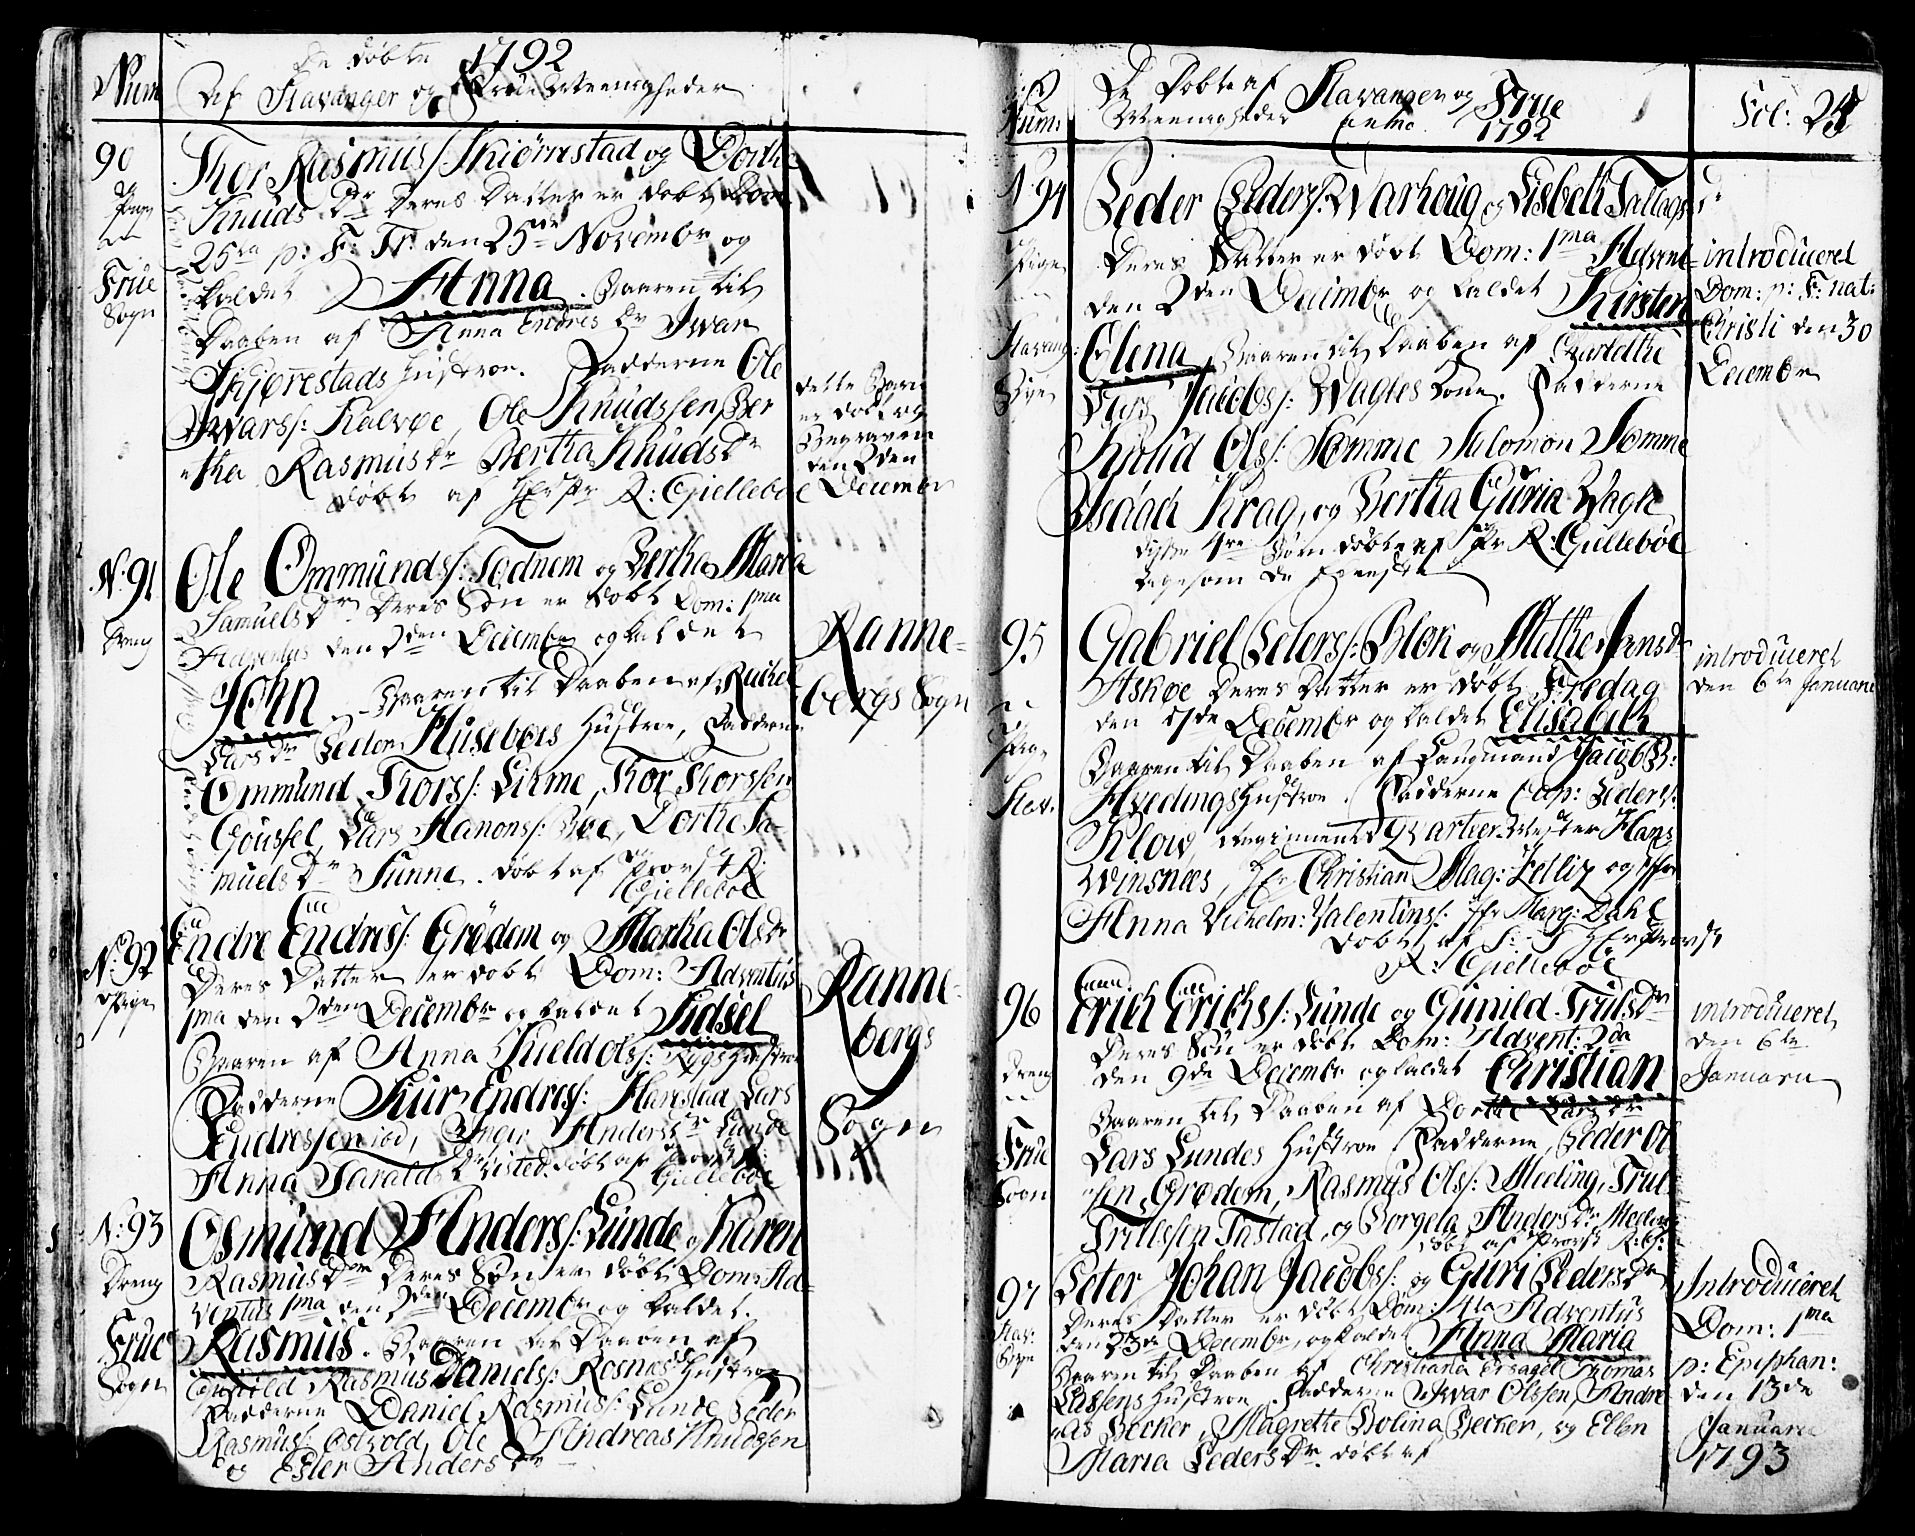 De døbte 1792
Num Af Stavanger og Frue Meenigheder
90 Thor Rasmus/: Skiørrestad og Dorthe
Pige Knuds Dr Deres Datter er døbt Dom
25ta p: F: Tr: den 25de Novembr og
Frue kaldet Anna. Baaren til
Sogn Daaben af Anna Endres Dr Iwar
Skjørestads Hustroe. Fadderne Ole
Iwars/: Kalvøe, Ole Knudssen Ber
etha Rasmus Dr Bertha Knuds Dr
døbt af Hr Pr R: Gjelleboe
dette Barn
er død og
Begraven
den 2den
Decembr
N: 91 Ole Ommunds/: Todnem og Bertha Maria
Samuels Dr Deres Søn er døbt Dom: 1ma
Dreng Adventus den 2den Decembr og kaldet
John. Baaren til Daaben af Rachel
Lars Dr Peder Huseboes Hustroe, Fadderne
Ommund Thors/: Likme, Thor Thorssen
Goussel, Lars Hanons/: Boe, Dorthe Sa-
muels Dr Sunne. døbt af Provst R:
Gjelleboe
Ranne-
bergs Sogn
N: 92 Endre Endres/: Grødem og Martha Ols Dr
Pige Deres Datter er døbt Dom: Adventus
1ma den 2den Decembr og kaldet Sidsel
Baaren af Anna Kield Ols/: Rygs Hustroe
Fadderne Siur Endres/: Harestad Lars
Endressen ibid, Inger Anders Dr Lunde
Anna Tarald Dr Visted. døbt af Provst R:
Gjelleboe
Ranne-
bergs
Sogn
N: 93 Osmund Anders/: Lunde og Karen
Dreng Rasmus Dtr Deres Søn er døbt Dom: Ad-
ventus 1ma den 2den Decembr og kaldet.
Frue Rasmus. Baaren til Daaben af
Sogn Gunild Rasmus Daniels/: Rosnæs Hustroe
Fadderne Daniel Rasmus/: Lunde Peder
Rasmus/: Østvold, Ole Andreas Knudssen
og Ester Anders Dr
Num: De Døbte af Stavanger og Frue Fol: 24
Meenigheder anno 1792
N: 94 Peder Peders/: Warhoug og Lisbeth Tallags Dr
Pige Deres Datter er døbt Dom: 1ma Advent
den 2den Decembr og kaldet Kirsten
Stavang: Olena. Baaren til Daaben af Marethe
Sogn Lars Jacobs/: Wagles Kone. Fadderne
Knud Ols/: Somme Salomon Somme
Isaach Krag, og Bertha Guria Wagle
disse 4re Børn døbt af Pr R: Gjelleboe
ligesom de første
introduceret
Dom: p: F: nat:
Christi den 30
Decembr
95 Gabriel Peters/: Blok og Mitthe Jens Dr
Askøe Deres Datter er døbt Fredag
Pige den 7de Decembr og kaldet Elisabeth
Baaren til Daaben af Laugmand Jacob B:
Stav. Hvedings Hustroe. Fadderne Cap: Peders/:
Klow, Regiments Qvarteer Mester Hans
Winsnees, Hr Christian Mag: Zelliz og Jfr
Anna Vilhelm: Valentins/. Jfr Marg: Dahl
døbt af S: T Hr Provst
R: Gjelleboe
introduceret
den 6te Januarii
96 Erich Erichs/: Lunde og Gunild Truls Dr
Deres Søn er døbt Dom: Advent: 2da
Dreng den 9de Decembr og kaldet Christian
Baaren til Daaben af Dorthe Lars Dr
Frue Lars Lundes Hustroe Fadderne, Peder Ol
Sogn sen, Grødem, Rasmus Ols/: Meeling, Truls
Trulssen Tastad, og Borgela Anders Dr Meeling
døbt af Provst R: G/:
introduceret
den 6te
Januarii
97 Peter Johan Jacobs/: og Guri Peders Dr
Stav: Deres Datter er døbt Dom: 4ta Adventus
Sogn den 23de Decembr, og kaldet Anna Maria
Baaren til Daaben af Christiana Thomas
Lassens Hustroe. Fadderne Iwar Olssen, Andre
as Becker, Magrethe Bolina Becker, og Ellen
Maria Peders Dr. døbt af
Introduceret
Dom: 1ma
p: Epiphan:
den 13de
Januarii
1793